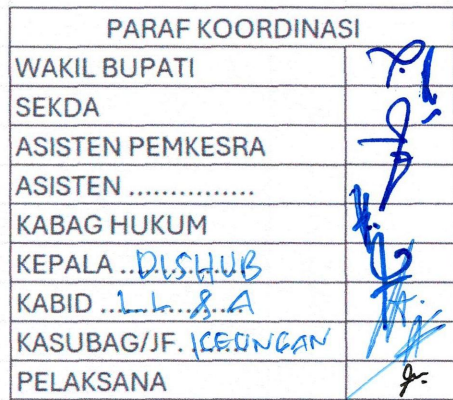 PARAF KOORDINASI
WAKIL BUPATI
SEKDA
ASISTEN PEMKESRA
ASISTEN ...............
KABAG HUKUM
KEPALA ..DISHUB
KABID ...L.L & A
KASUBAG/JF. KEUNGAN
PELAKSANA